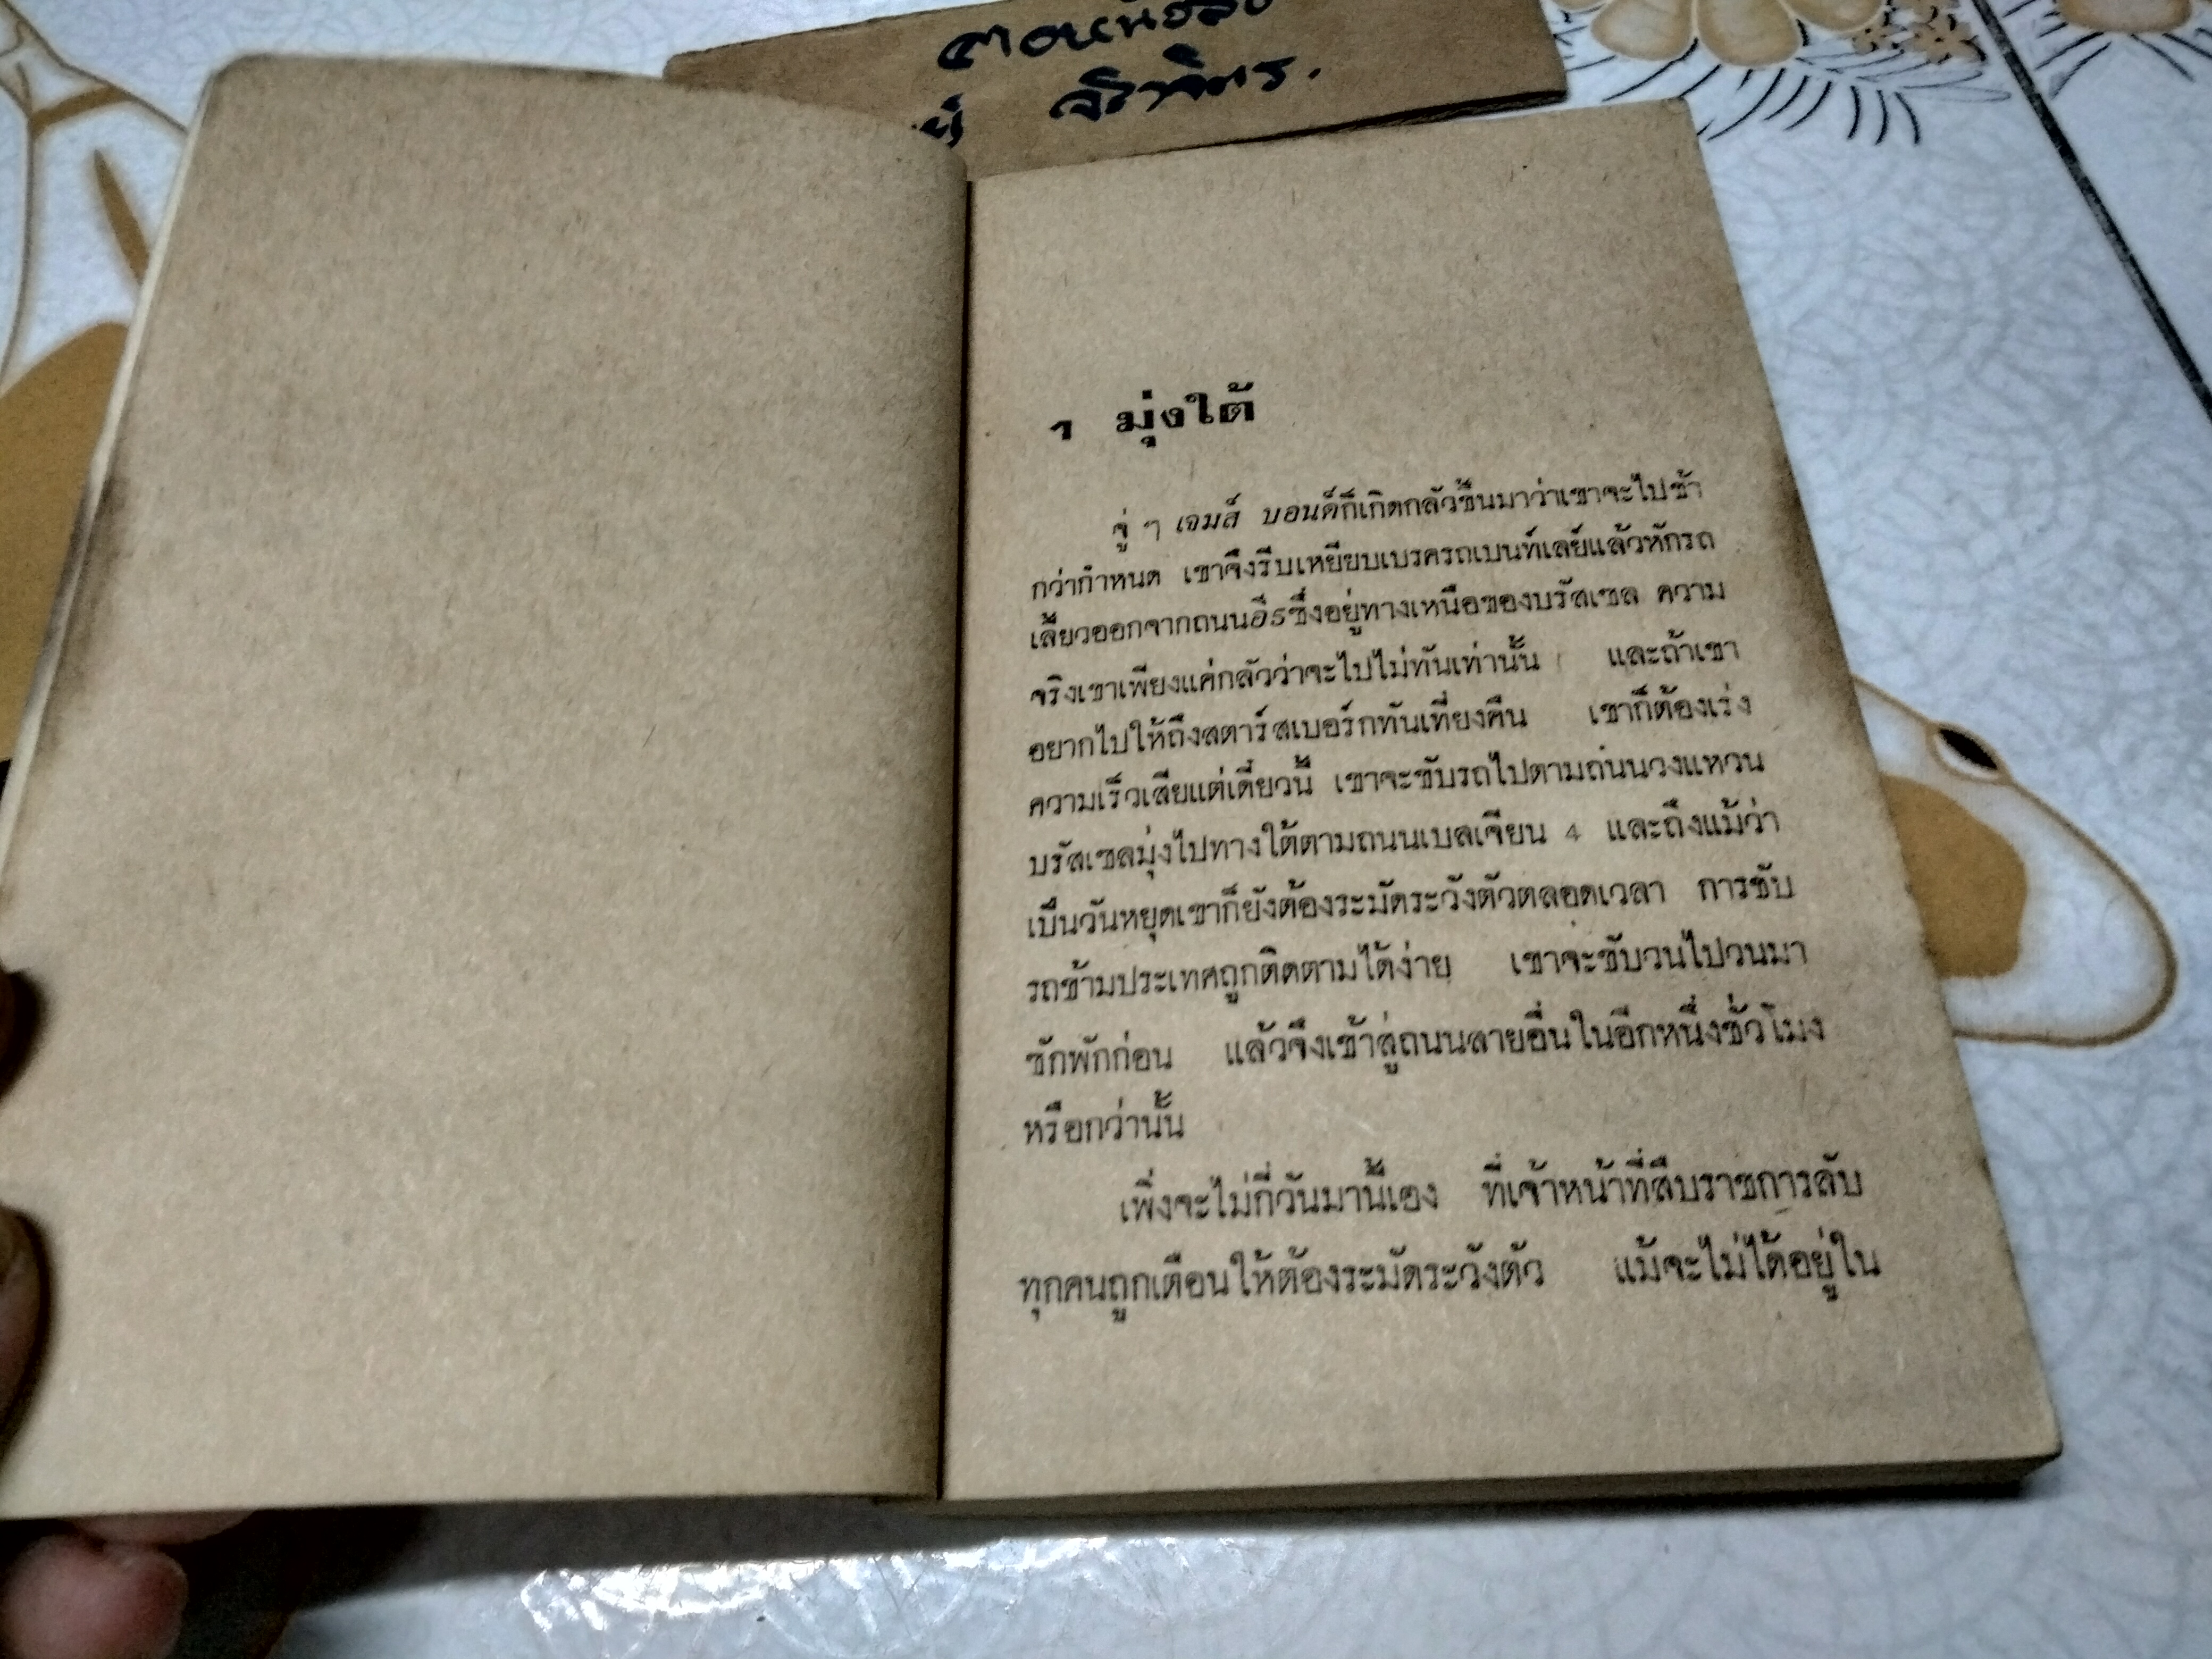 จิรจิตร.
๑ มุ่งใต้
จู่ ๆ เจมส์ บอนด์ก็เกิดกลัวขึ้นมาว่าเขาจะไปช้า
กว่ากำหนด เขาจึงรีบเหยียบเบรครถเบนท์เลย์แล้วหักรถ
เลี้ยวออกจากถนนอี5ซึ่งอยู่ทางเหนือของบรัสเซล ความ
จริงเขาเพียงแค่กลัวว่าจะไปไม่ทันเท่านั้น และถ้าเขา
อยากไปให้ถึงสตาร์สเบอร์กทันเที่ยงคืน เขาก็ต้องเร่ง
ความเร็วเสียแต่เดี๋ยวนี้ เขาจะขับรถไปตามถนนวงแหวน
บรัสเซลมุ่งไปทางใต้ตามถนนเบลเจียน 4 และถึงแม้ว่า
เป็นวันหยุดเขาก็ยังต้องระมัดระวังตัวตลอดเวลา การขับ
รถข้ามประเทศถูกติดตามได้ง่าย เขาจะขับวนไปวนมา
ซักพักก่อน แล้วจึงเข้าสู่ถนนสายอื่นในอีกหนึ่งชั่วโมง
หรือกว่านั้น
เพิ่งจะไม่กี่วันมานี้เอง ที่เจ้าหน้าที่สืบราชการลับ
ทุกคนถูกเตือนให้ต้องระมัดระวังตัว แม้จะไม่ได้อยู่ใน